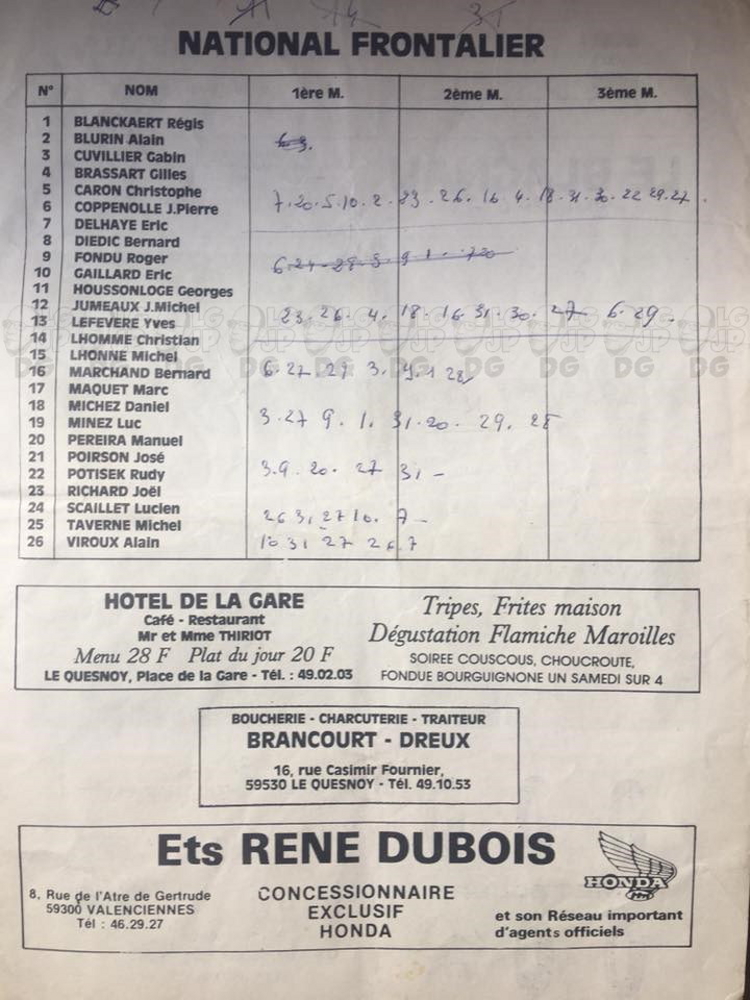 NATIONAL FRONTALIER
N° NOM 1ère M. 2ème M. 3ème M.
1 BLANCKAERT Régis
2 BLURIN Alain
3 CUVILLIER Gabin
4 BRASSART Gilles
5 CARON Christophe
6 COPPENOLLE J.Pierre
7 . 20 . 5 . 10 . 2 . 23 . 26 . 16 . 4 . 18 . 31 . 30 . 22 29 . 27 .
7 DELHAYE Eric
8 DIEDIC Bernard
9 FONDU Roger
10 GAILLARD Eric
11 HOUSSONLOGE Georges
12 JUMEAUX J.Michel
23 . 26 . 4 . 18 . 16 . 31 . 30 . 27 6 . 29 .
13 LEFEVERE Yves
14 LHOMME Christian
15 LHONNE Michel
16 MARCHAND Bernard
6 . 27 . 29 3 . 9 . 1 28
17 MAQUET Marc
18 MICHEZ Daniel
19 MINEZ Luc
3 . 27 9 . 1 . 31 . 20 . 29 . 28
20 PEREIRA Manuel
21 POIRSON José
22 POTISEK Rudy
3 . 9 . 20 . 27 31 -
23 RICHARD Joël
24 SCAILLET Lucien
25 TAVERNE Michel
26 31 . 27 10 . 7 -
26 VIROUX Alain
10 31 27 26 . 7
HOTEL DE LA GARE
Café - Restaurant
Mr et Mme THIRIOT
Menu 28 F Plat du jour 20 F
LE QUESNOY, Place de la Gare - Tél. : 49.02.03
Tripes, Frites maison
Dégustation Flamiche Maroilles
SOIREE COUSCOUS, CHOUCROUTE,
FONDUE BOURGUIGNONE UN SAMEDI SUR 4
BOUCHERIE - CHARCUTERIE - TRAITEUR
BRANCOURT - DREUX
16, rue Casimir Fournier,
59530 LE QUESNOY - Tél. 49.10.53
Ets RENE DUBOIS
8, Rue de l'Atre de Gertrude
59300 VALENCIENNES
Tél : 46.29.27
CONCESSIONNAIRE
EXCLUSIF
HONDA
HONDA
et son Réseau important
d'agents officiels